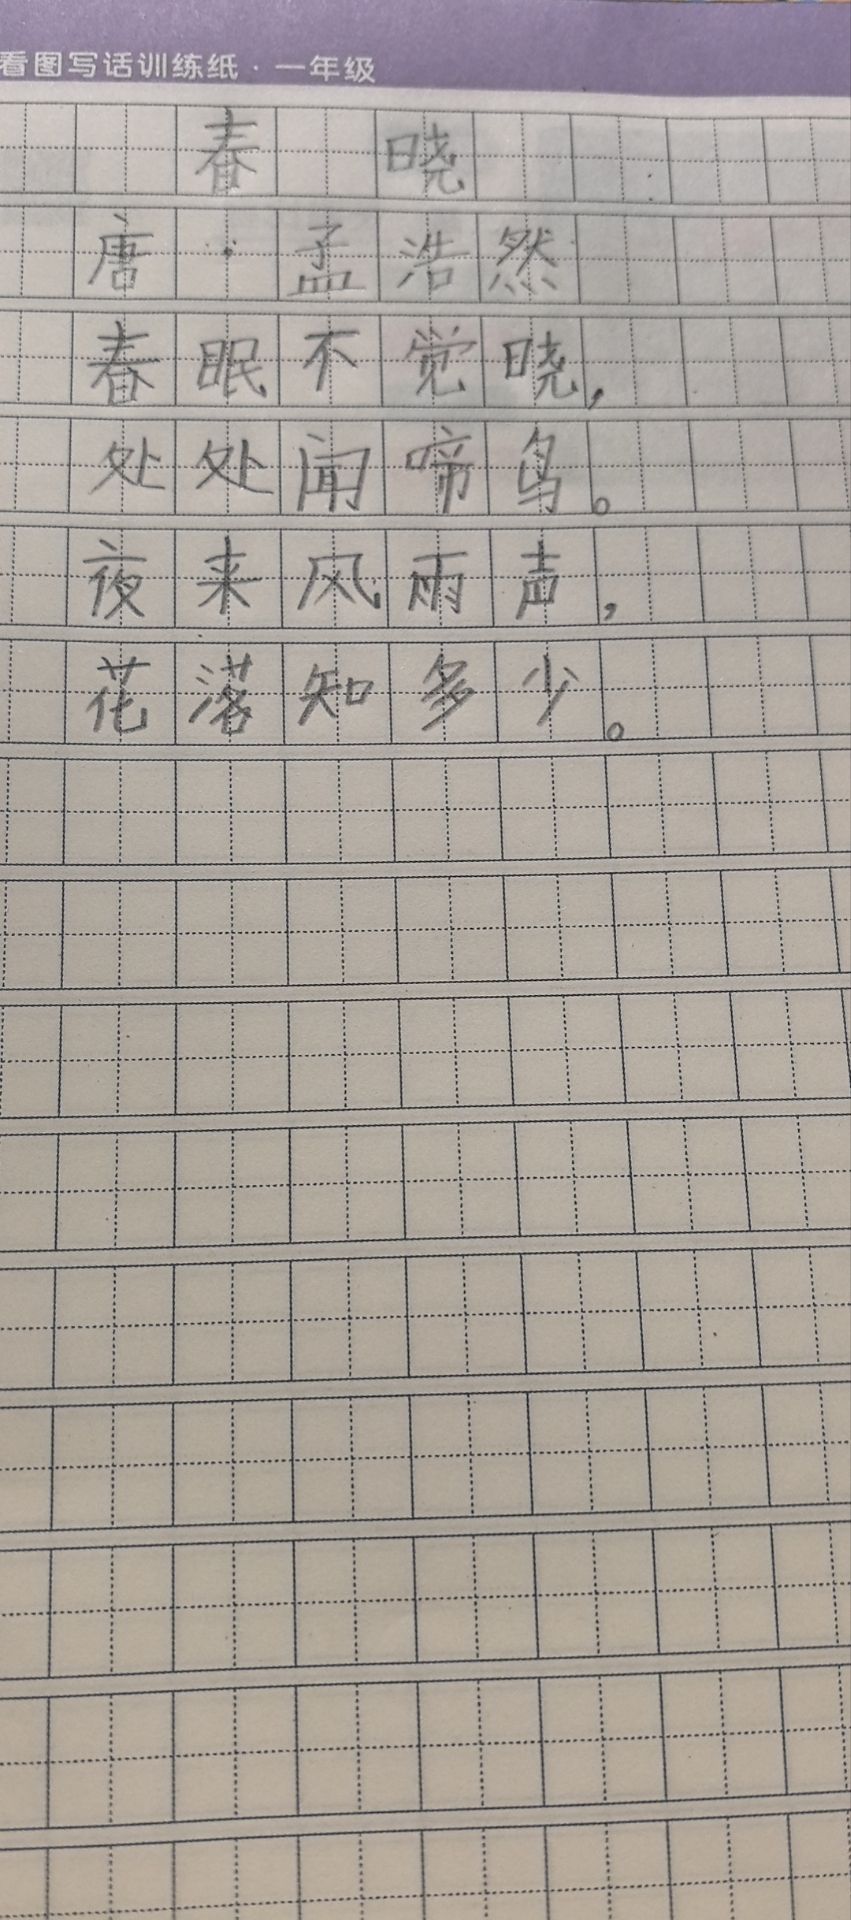 看图写话训练纸·一年级
春 晓
唐·孟浩然
春眠不觉晓，
处处闻啼鸟。
夜来风雨声，
花落知多少。